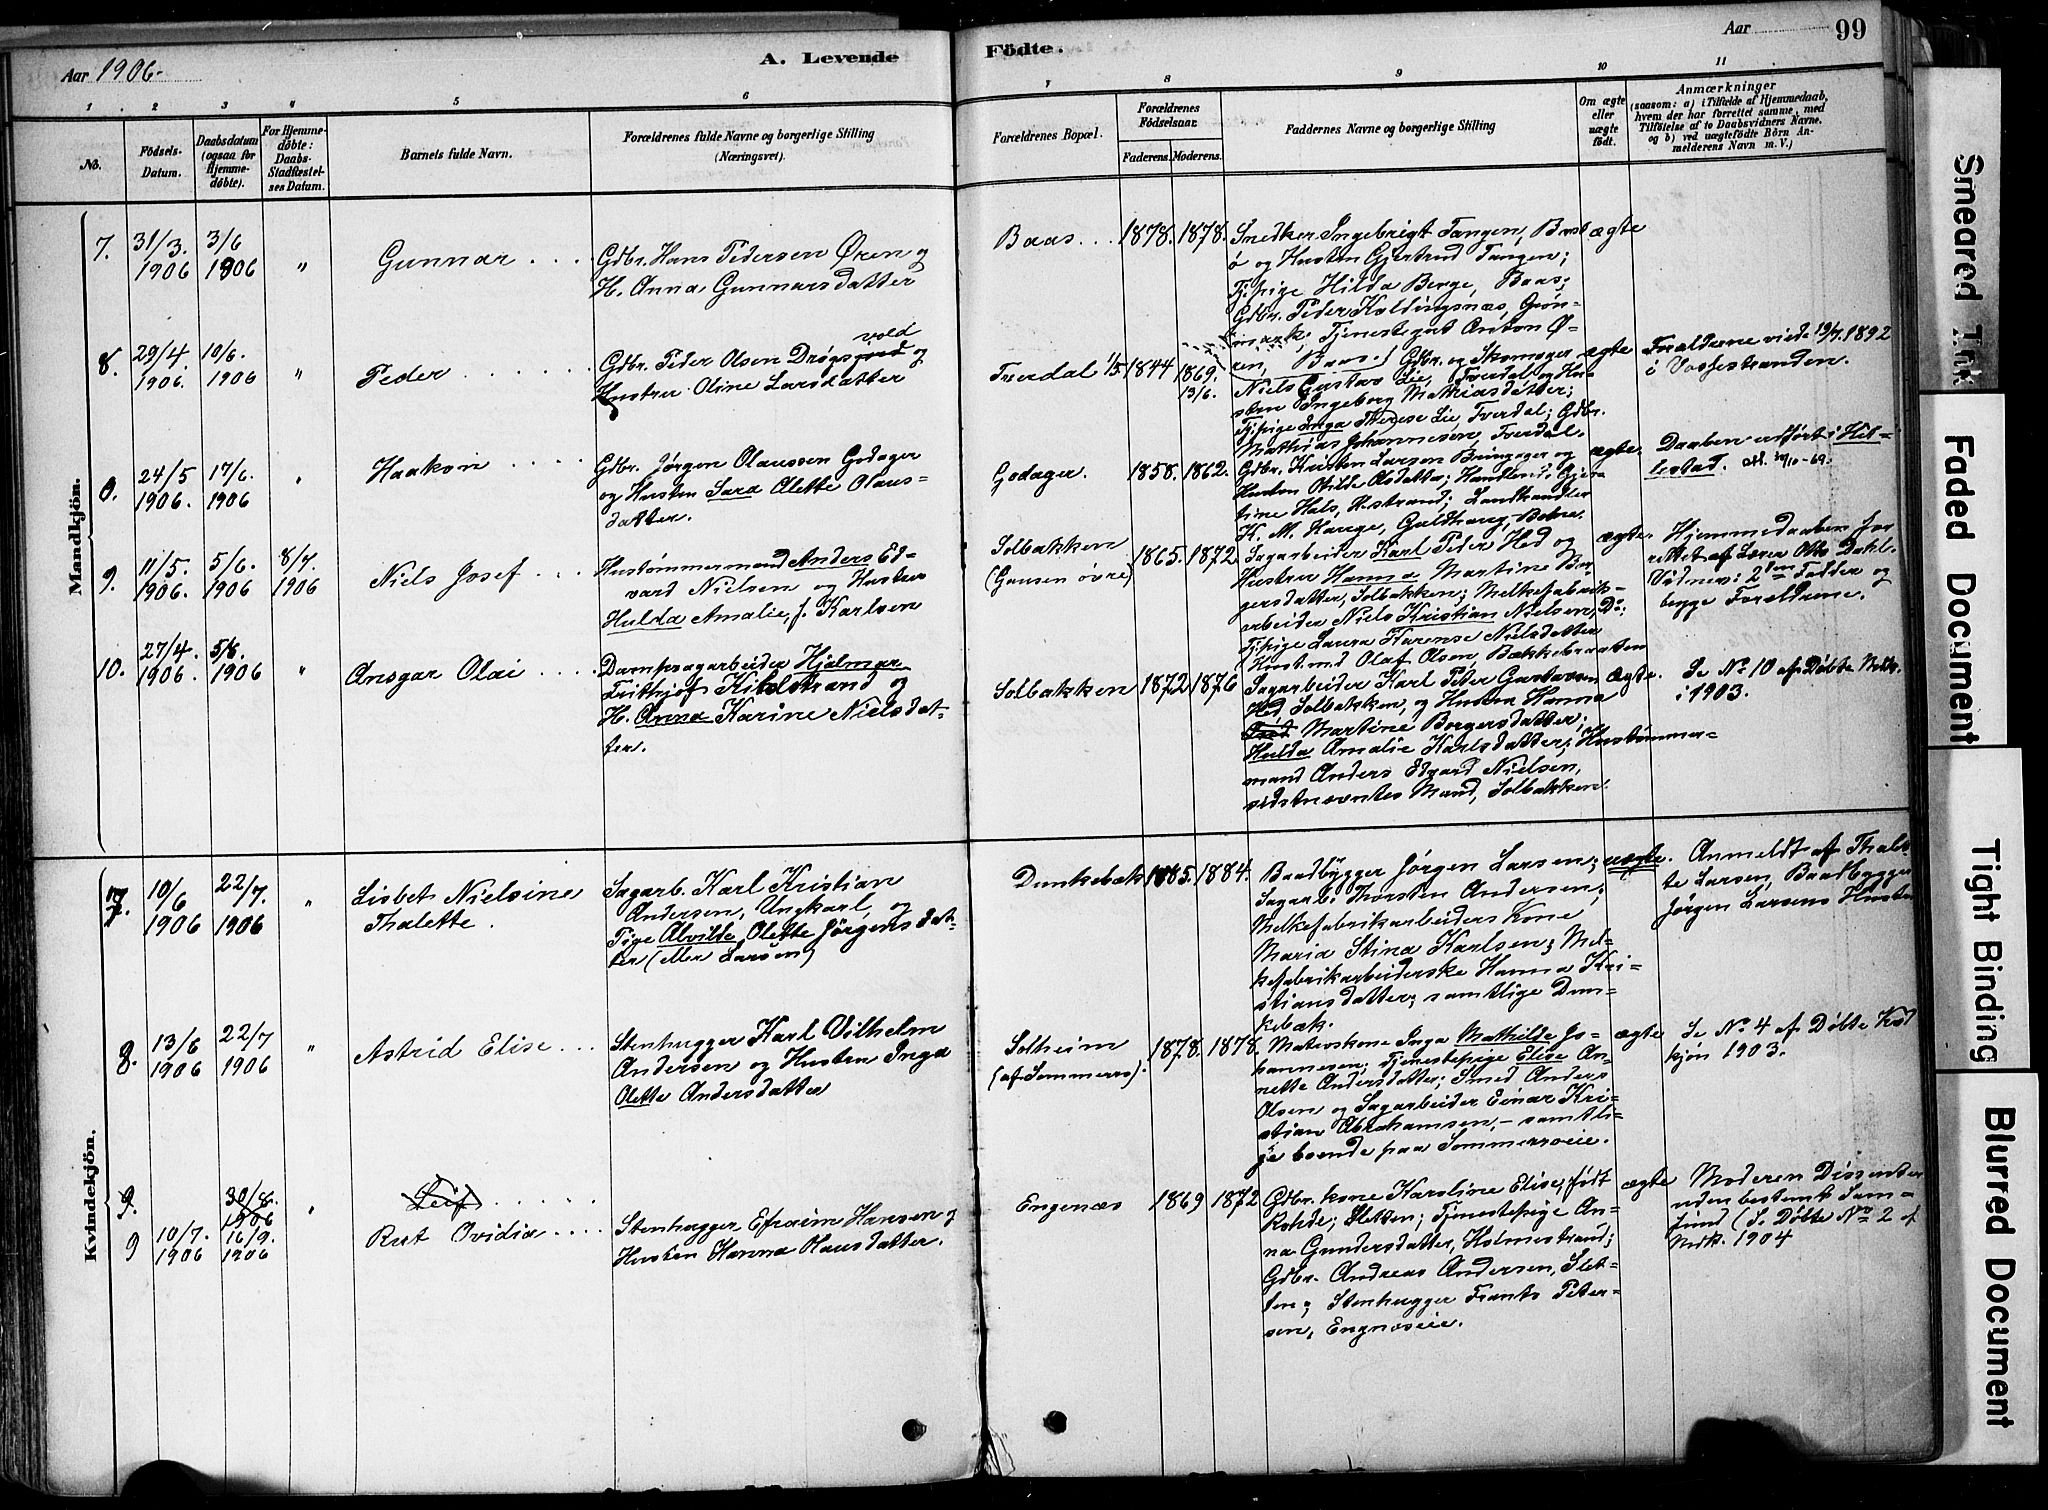 Aar 1906.
A. Levende
Födte.
Aar
99
1
2
3
4
5
6
7
8
9
10
11
No.
Födsels-
Datum.
Daabsdatum
(ogsaa for
Hjemme-
døbte).
For Hjemme-
døbte:
Daabs-
Stadfæstel-
ses Datum.
Barnets fulde Navn.
Forældrenes fulde Navne og borgerlige Stilling
(Næringsvei).
Forældrenes Bopæl.
Forældrenes
Födselsaar.
Faderens. Moderens.
Faddernes Navne og borgerlige Stilling
Om ægte
eller
uægte
født.
Anmærkninger
(saasom: a) i Tilfælde af Hjemmedaab,
hvem der har forrettet samme, med
Tilföielse af to Daabsvidners Navne.
og b) ved uægtefödte Börn An-
melderens Navn m. V.)
Mandkjön.
7.
31/3.
1906
3/6
1906
"
Gunnar
Gdbr. Hans Pedersen Øren og
H. Anna Gunnarsdatter
Baas
1878. 1878.
Snedker Ingebrigt Tangen,
ø og Husten Gjertrud Tangen;
Tj.pige Hilda Berge, Baas;
Gdbr. Peder Holdingsnæs, Grøn-
mark; Tjenestegut Anton Ø-
ren, Baas.
ægte
8.
29/4.
1906.
10/6.
1906
"
Peder
Gdbr. Peder Olsen Drøgsvold og
Hustru Oline Larsdatter
Tverdal
1/5 1844
1869.
13/6.
Gdbr. og Skomager
Niels Gustav Lie, Tverdal og Hu-
stru Ingeborg Mathiasdatter;
Tj.pige Inga Therese Lie, Tverdal; Gdbr.
Mathias Johannesen, Tverdal.
ægte
Forældrene viede 19/7. 1892
i Vossestranden.
24/5
1906.
17/6.
1906
"
Haakon
Gdbr. Jørgen Olaussen Godager
og Husten Sara Olette Olaus-
datter.
Godager.
1858. 1862.
Gdbr. Kristen Larsen Bringager og
Husten Otilde Olsdatter;
tine Hals, H.strand; Landhandler
K. M. Hauge, Guldhaug, Botne.
ægte.
Daaben udført i Hil-
lestad.
9.
11/5.
1906.
5/6.
1906
8/7.
1906
Niels Josef
Hustømmermand Anders Ed-
vard Nielsen og Hustru
Hulda Amalie, f. Karlsen
Solbakken
(Gausen øvre)
1865. 1872.
Sagarbeider Karl Peder Hed og
Hustru Hanna Martine Bor-
gersdatter, Solbakken; Melkefabrik-
arbeider Niels Kristian Nielsen, Do;
Tj.pige Laura Karense Nielsdatter
Hust.md Olaf Olsen, Bækkebraaten
ægte.
Hjemmedaaben for-
rettet af Lærer Otto Dahl.
Vidner: 2den Fadder og
begge Forældrene.
10.
27/4.
1906.
5/8.
1906
"
Ansgar Olai
Dampsagarbeider Hjalmar
Frithjof Kihlstrand og
H. Anna Karine Nielsdat-
ter.
Solbakken
1872 1876
Sagarbeider Karl Peter Gustavsen
Hed, Solbakken, og Hustru Hanna
Martine Borgersdatter;
Hulda Amalie Karlsdatter; Hustømmer-
mand Anders Edvard Nielsen,
sidstnævntes Mand, Solbakken.
ægte.
Se No 10 af Døbte Mdk.
i 1903.
Kvindekjön.
7.
10/6
1906
22/7.
1906
"
Lisbet Nielsine
Thalette.
Sagarb. Karl Kristian
Andersen, Ungkarl, og
Pige Alvilde Olette Jörgensdat-
ter (Larsen)
Dunkebæk
1885. 1884.
Baadbygger Jörgen Larsen;
Sagarb. Thorsten Andersen;
Melkefabrikarbeiders Kone
Maria Stina Karlsen; Mel-
kefabrikarbeiderske Hanna Kri-
stiansdatter; samtlige Dun-
kebæk.
uægte.
Anmeldt af Thalet-
te Larsen, Baadbygger
Jørgen Larsens Husten
8.
13/6
1906
22/7
1906
"
Astrid Elise
Stenhugger Karl Vilhelm
Andersen og Husten Inga
Olette Andersdatter
Solheim
(af Sommerro).
1878. 1878.
Matroskone Inga Mathilde Jo-
hannesen; Tjenestepige Elise An-
nette Andersdatter; Smed Anders
Olsen og Sagarbeider Einar Kri-
stian Abrahamsen, - samtli-
ge boende paa Sommerroeie.
ægte
Se No 4 af Døbte Kvd
kjön 1903.
9.
30/8.
1906
"
Leif
9
10/7.
1906
16/9.
1906
Rut Ovidia
Stenhugger Efraim Hansen og
Husten Hanna Olausdatter.
Engenæs
1869 1872
Gdbr.kone Karoline Elise, født
Rohde; Sletten; Tjenestepige An-
na Gundersdatter, Holmestrand;
Gdbr. Andreas Andersen, Slet-
ten; Stenhugger Frants Peter-
sen, Engnæseie.
ægte
Moderen Dissenter
uden bestemt Sam-
fund (Se Døbte No 2 af
Mdk. 1904
Smeared Ink
Faded Document
Tight Binding
Blurred Document